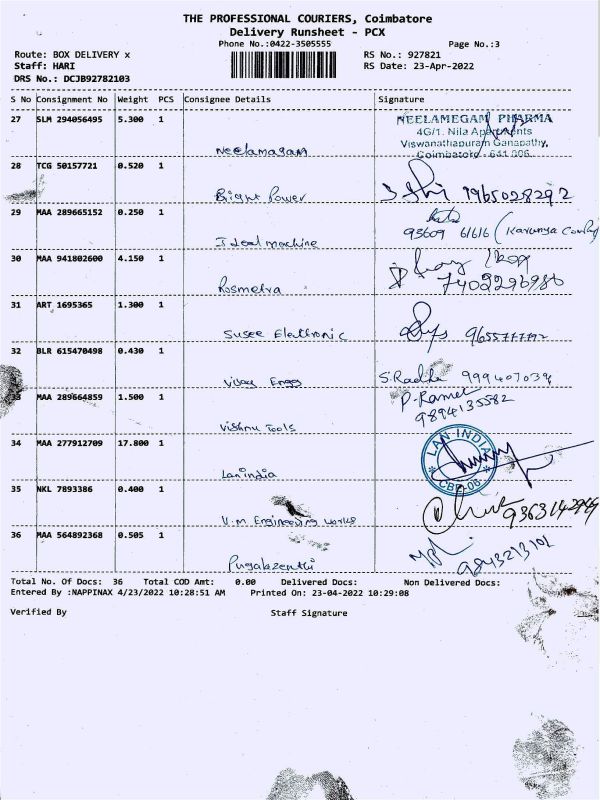 THE PROFESSIONAL COURIERS, Coimbatore
Delivery Runsheet - PCX
Phone No.:0422-3505555
Page No.:3
Route: BOX DELIVERY x
RS No.: 927821
Staff: HARI
RS Date: 23-Apr-2022
DRS No.: DCJB92782103
S No Consignment No Weight PCS Consignee Details Signature
27 SLM 294056495 5.300 1
NEELAMEGAM PHARMA
4G/1. Nila Apartments
Viswanathapuram Ganapathy,
Coimbatore - 641 006.
Neelamagam
28 TCG 50157721 0.520 1
Bright Power
9965028292
29 MAA 289665152 0.250 1
Ideal machine
93609 61616
30 MAA 941802600 4.150 1
Rosmetra
31 ART 1695365 1.300 1
Susee Electronic
32 BLR 615470498 0.430 1
Vijay Enggs
S. Radha 999407039
33 MAA 289664859 1.500 1
P. Ramer
9894135582
Vishnu Tools
34 MAA 277912709 17.800 1
LAN INDIA
CBE-06
Lanindia
35 NKL 7893386 0.400 1
V.M Engineering works
36 MAA 564892368 0.505 1
9843213101
Pugalzenthi
Total No. Of Docs: 36 Total COD Amt: 0.00 Delivered Docs: Non Delivered Docs:
Entered By :NAPPINAX 4/23/2022 10:28:51 AM Printed On: 23-04-2022 10:29:08
Verified By Staff Signature